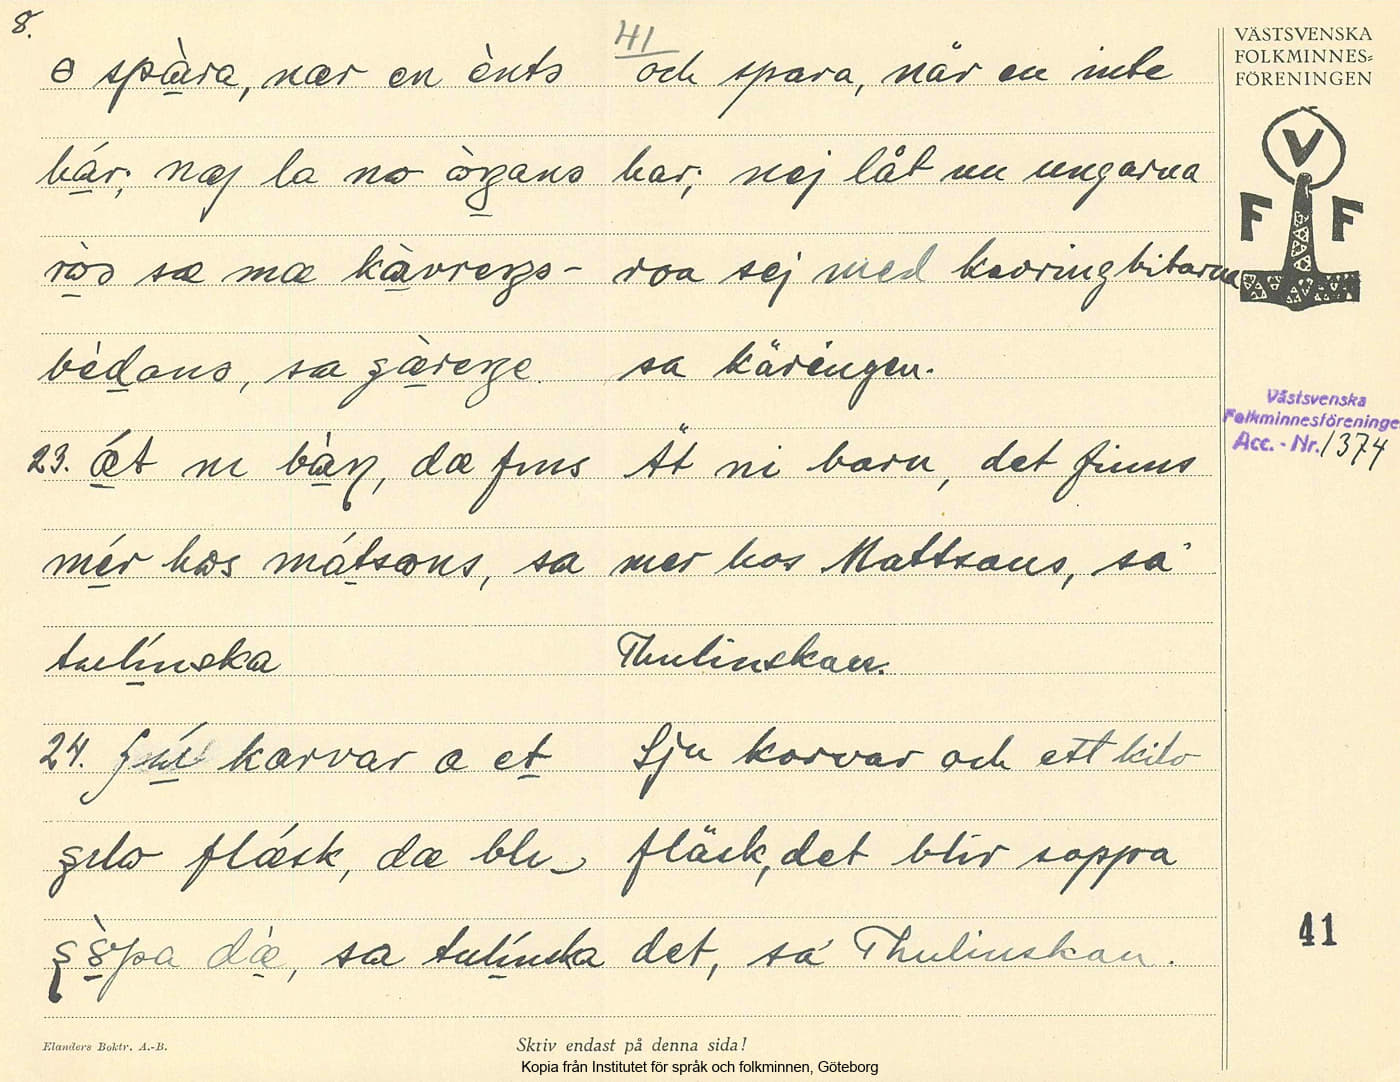 8.
41
ɵ spàra, nær en ènts och spara, når en inte
hár; næj la no òŋans har; nej låt nu ungarna
ròs sæ mæ kàvreŋs- roa sej med kavringbitarna
bèdans, sa çàreŋe. sa käringen.
23. ǽt ni bàɳ, dæ fins Ät ni barn, det finns
mér hos mátsons, sa mer hos Mattsons, sa
tulínska Thulinskan.
24. karvar o et Sju korvar och ett kilo
çilo flǽsk, dæ bli fläsk, det blir soppa
dæ̀, sa tulínska det, sa Thulinskan.
VÄSTSVENSKA
FOLKMINNES=
FÖRENINGEN
V
F F
Västsvenska
Folkminnesföreninge
Acc. - Nr. 1374
41
Elanders Boktr. A.-B.
Skriv endast på denna sida!
Kopia från Institutet för språk och folkminnen, Göteborg